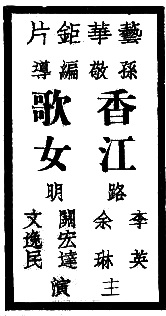 藝華鉅片
孫敬編導
香江
歌女
路明
李英
余琳
關宏達
文逸民
主演